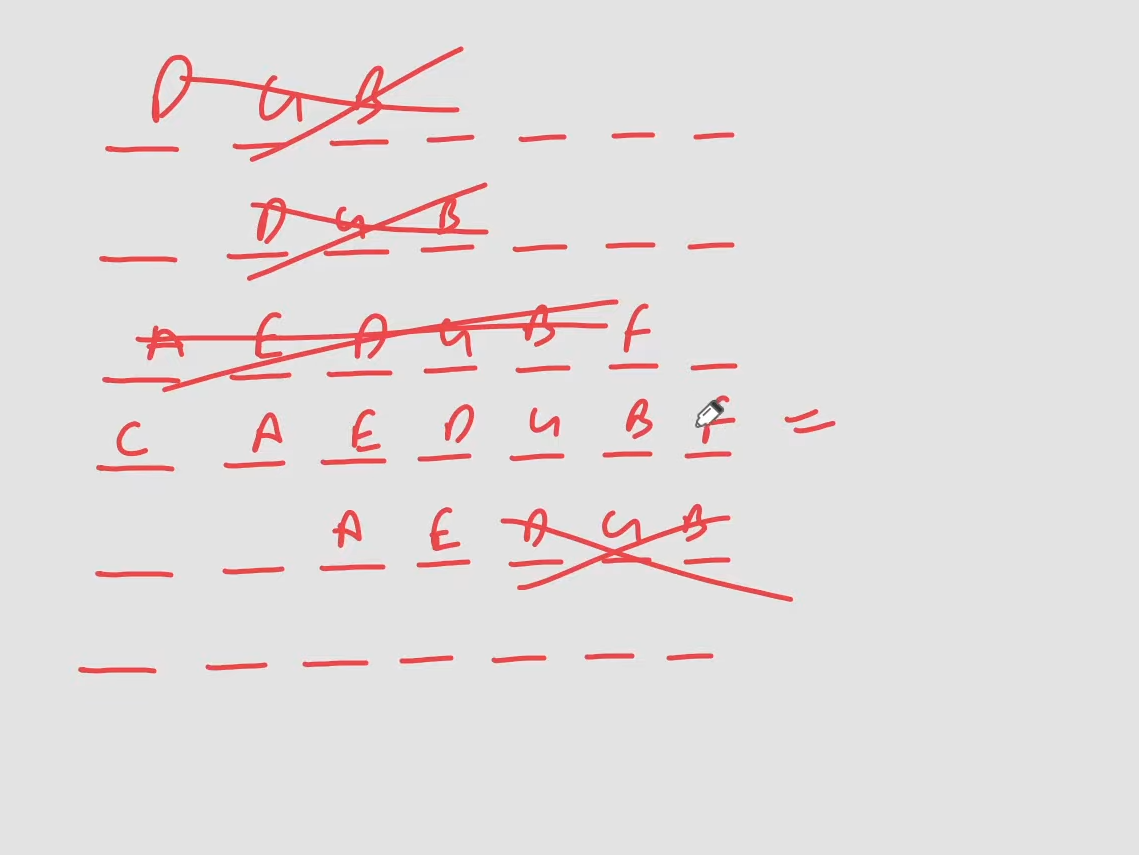 D G B
D G B
A E D G B F
C A E D G B F =
A E D G B